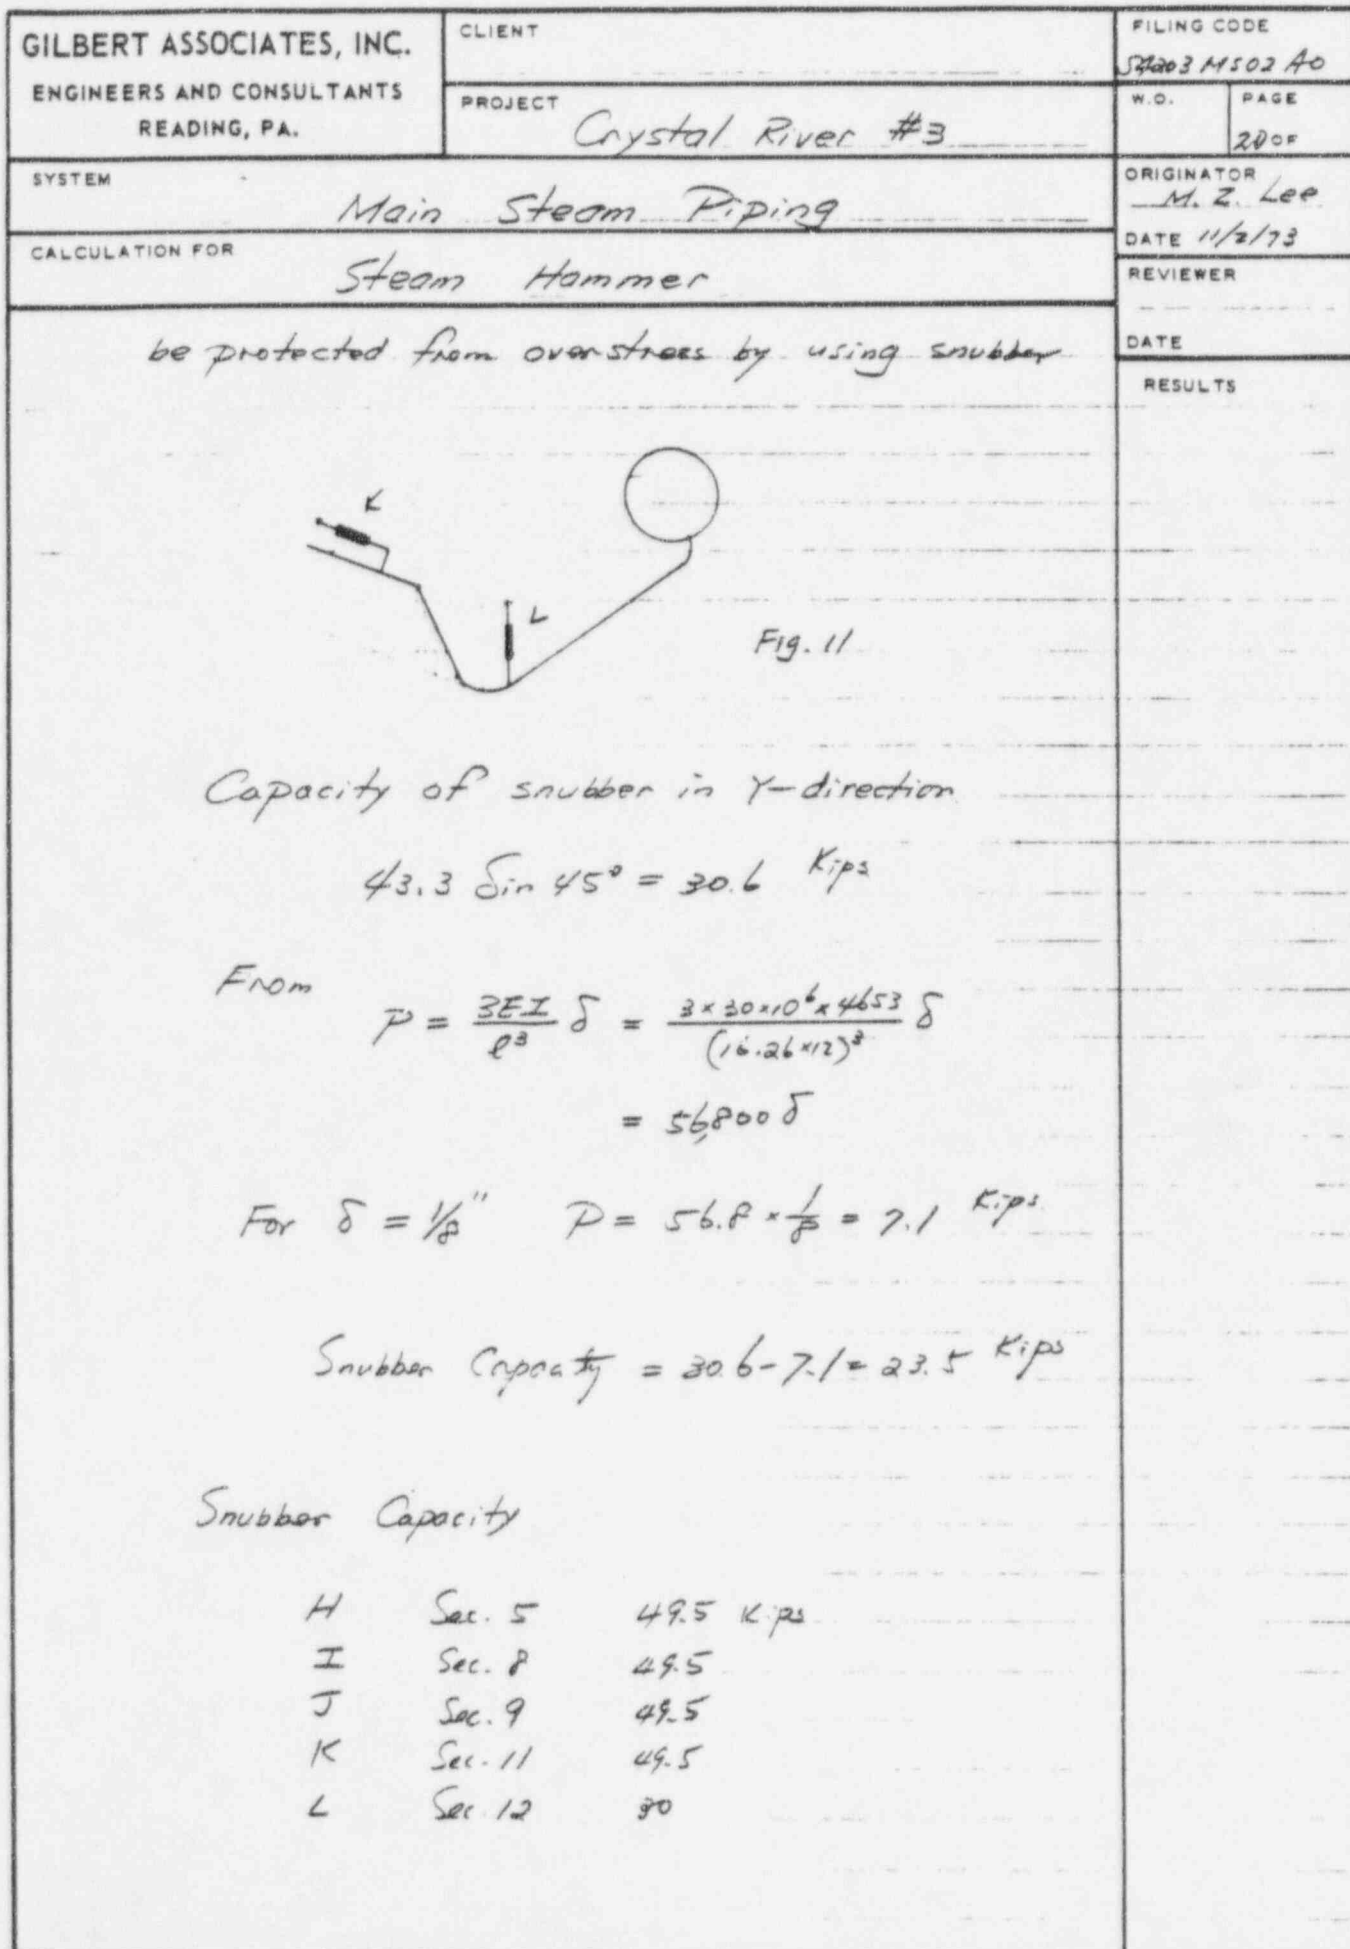 GILBERT ASSOCIATES, INC.
ENGINEERS AND CONSULTANTS
READING, PA.
CLIENT
PROJECT
Crystal River #3
FILING CODE
MS02 A0
W.O.
PAGE
20 OF
SYSTEM
Main Steam Piping
ORIGINATOR
M. Z. Lee
DATE 11/2/73
CALCULATION FOR
Steam Hammer
REVIEWER
DATE
RESULTS
be protected from overstress by using snubber
K
L
Fig. 11
Capacity of snubber in Y-direction
43.3 Sin 45° = 30.6 Kips
From
P = 3EI/ℓ³ δ = 3×30×10⁶×4653/(16.26×12)³ δ
= 56,800 δ
For δ = 1/8" P = 56.8 × 1/8 = 7.1 Kips
Snubber Capacity = 30.6 - 7.1 = 23.5 Kips
Snubber Capacity
H Sec. 5 49.5 Kips
I Sec. 8 49.5
J Sec. 9 49.5
K Sec. 11 49.5
L Sec. 12 30